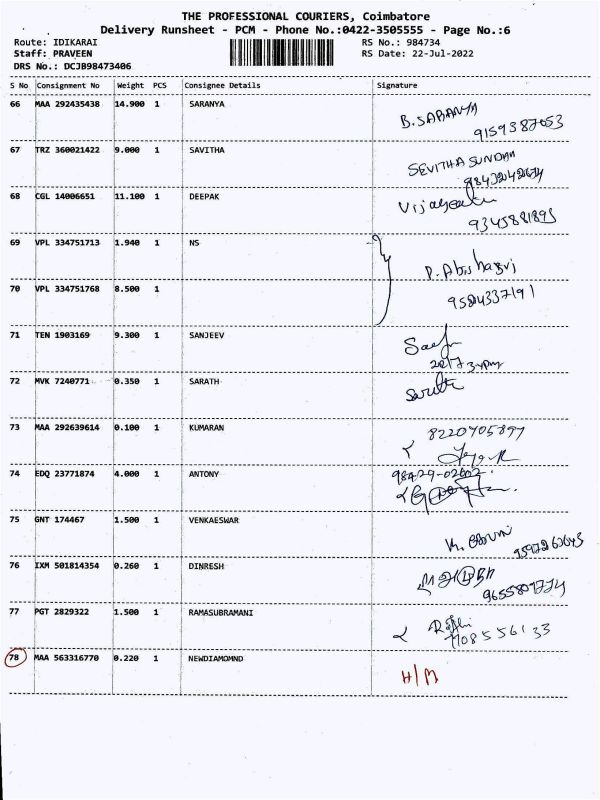 THE PROFESSIONAL COURIERS, Coimbatore
Delivery Runsheet - PCM - Phone No.:0422-3505555 - Page No.:6
Route: IDIKARAI RS No.: 984734
Staff: PRAVEEN RS Date: 22-Jul-2022
DRS No.: DCJB98473406
S No Consignment No Weight PCS Consignee Details Signature
66 MAA 292435438 14.900 1 SARANYA B.SARANYA
9159387053
67 TRZ 360021422 9.000 1 SAVITHA SEVITHA SUNDAH
68 CGL 14006651 11.100 1 DEEPAK
9345881895
69 VPL 334751713 1.940 1 NS
70 VPL 334751768 8.500 1
71 TEN 1903169 9.300 1 SANJEEV
72 MVK 7240771 0.350 1 SARATH
73 MAA 292639614 0.100 1 KUMARAN 8220705897
74 EDQ 23771874 4.000 1 ANTONY
75 GNT 174467 1.500 1 VENKAESWAR
76 IXM 501814354 0.260 1 DINRESH
77 PGT 2829322 1.500 1 RAMASUBRAMANI
78 MAA 563316770 0.220 1 NEWDIAMOMND H/M